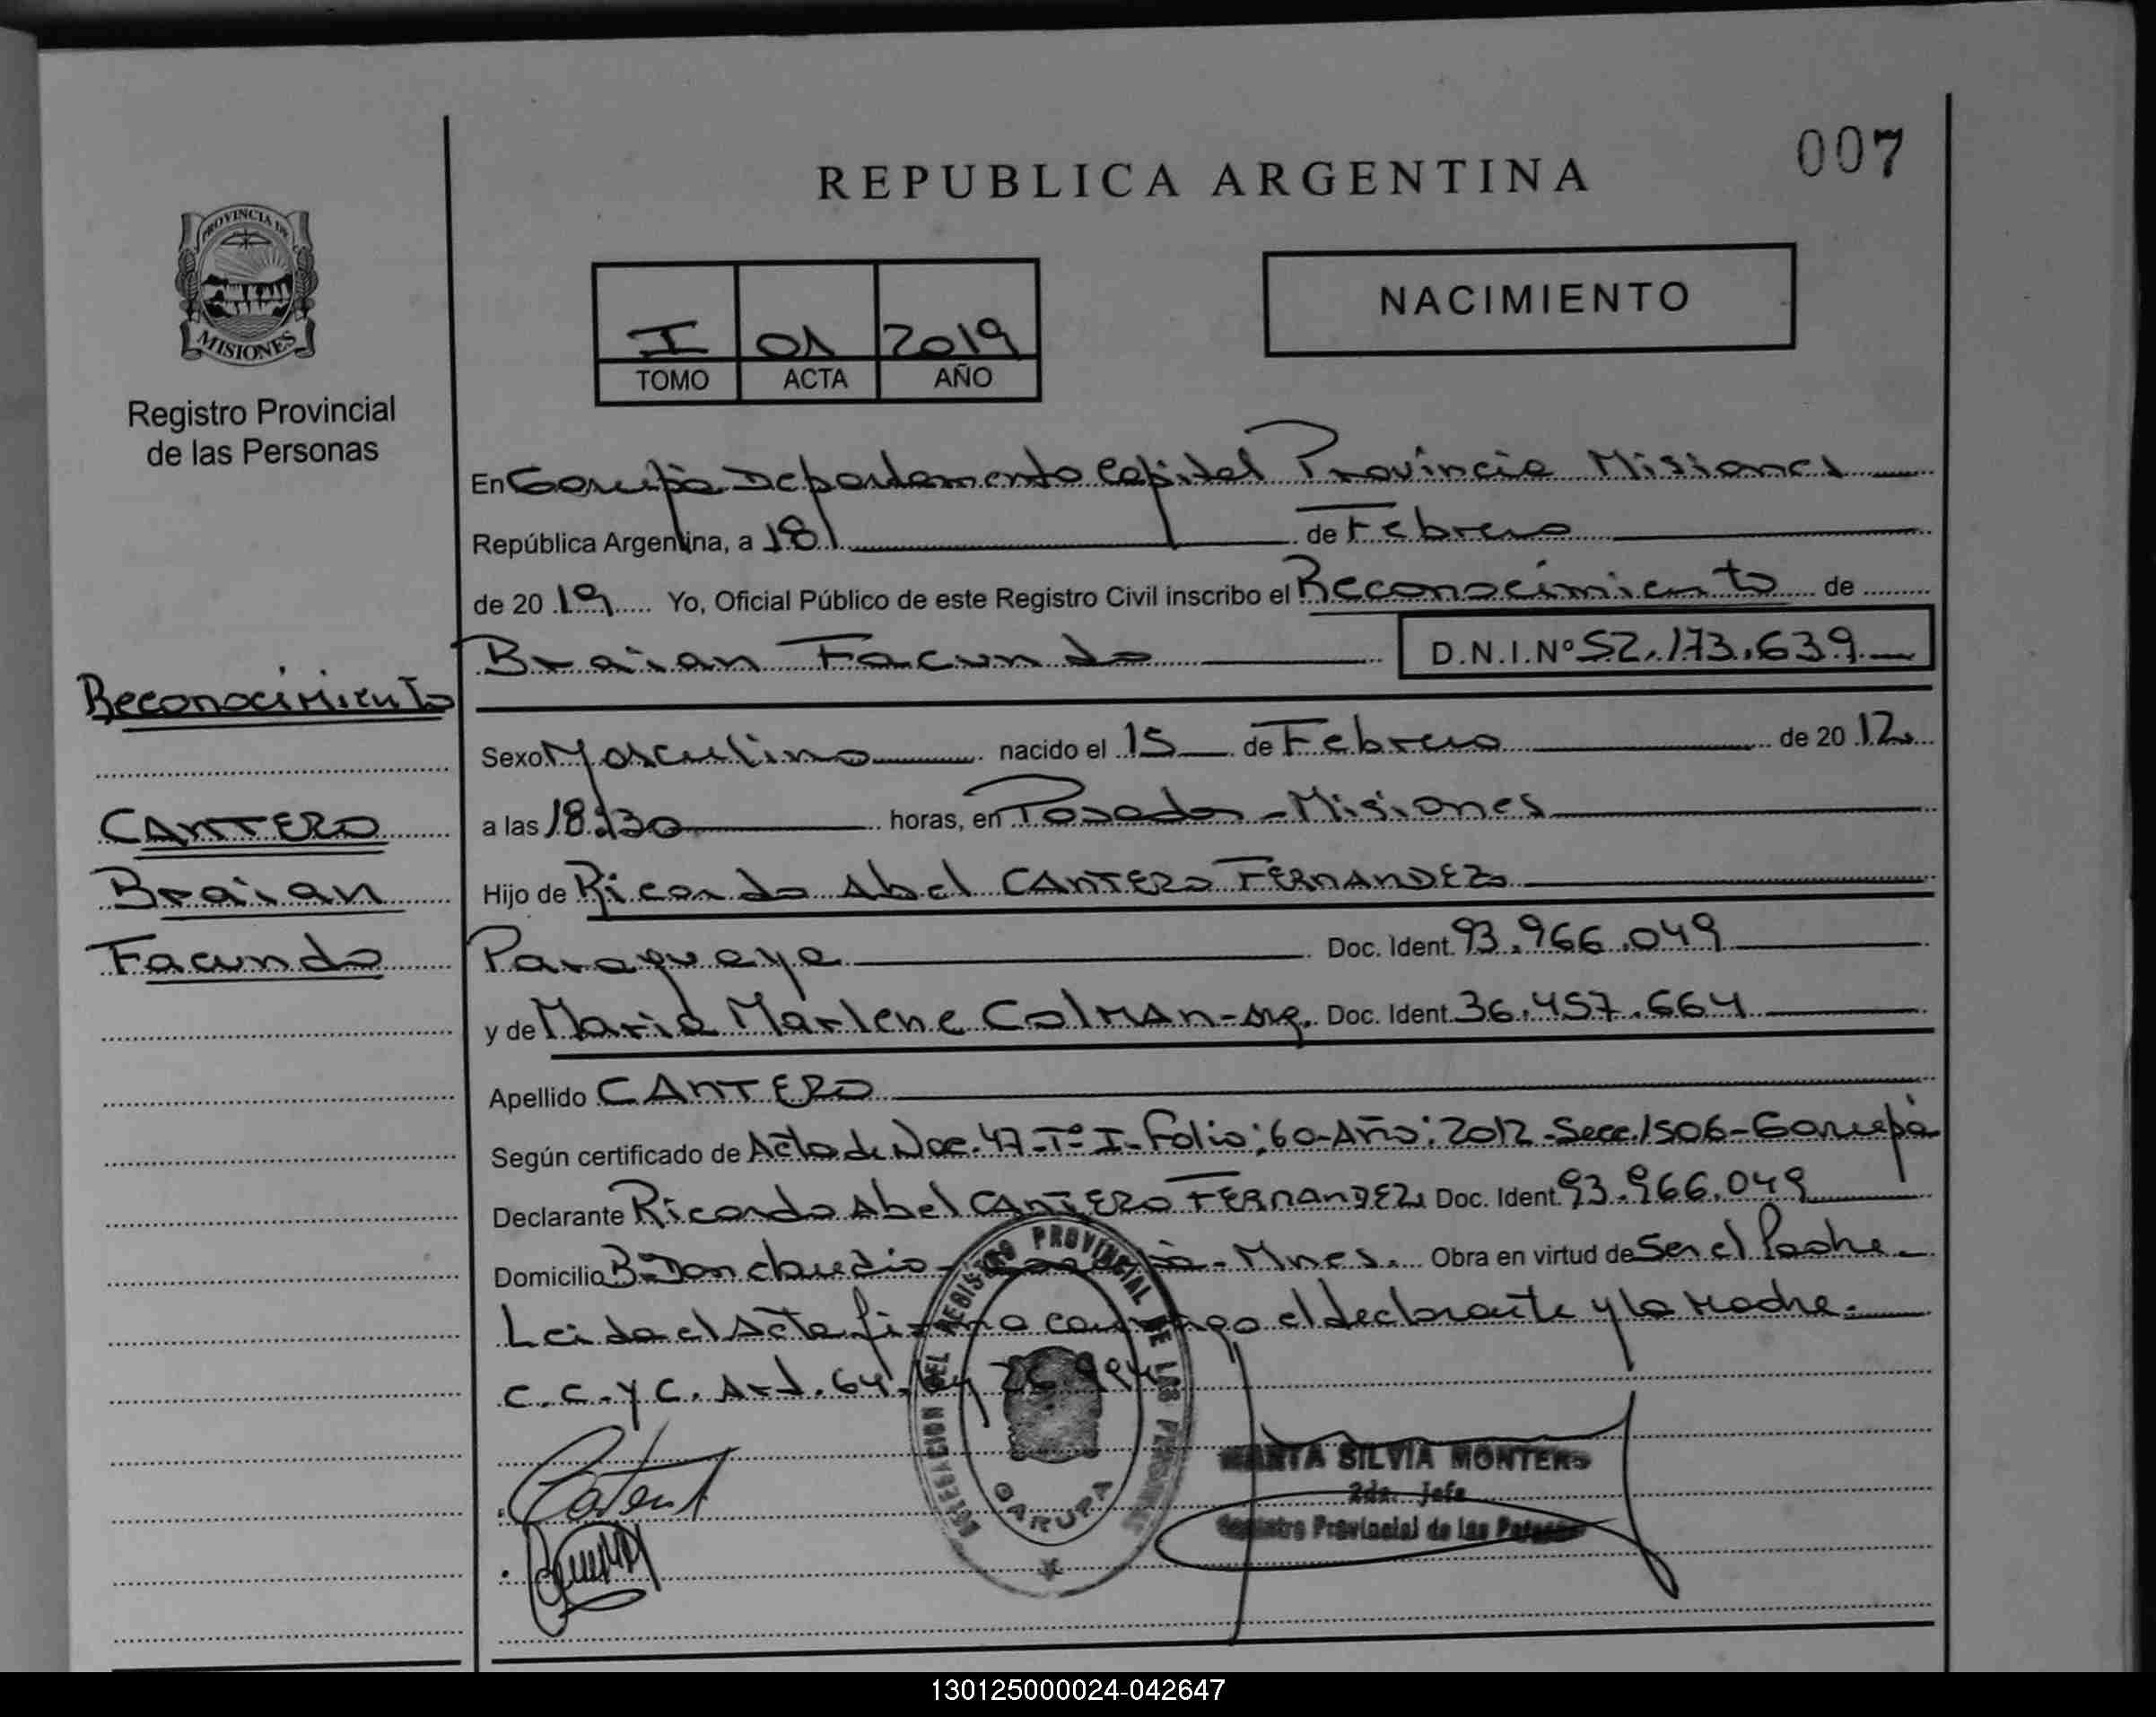 007
REPUBLICA ARGENTINA
PROVINCIA DE
MISIONES
Registro Provincial
de las Personas
I 01 2019
TOMO ACTA AÑO
NACIMIENTO
En Garupá Departamento Capital Provincia Misiones
República Argentina, a 18 de Febrero
de 2019 Yo, Oficial Público de este Registro Civil inscribo el Reconocimiento de
Braian Facundo D.N.I.Nº 52.173.639
Reconocimiento
CANTERO
Braian
Facundo
Sexo Masculino nacido el 15 de Febrero de 2012
a las 18:30 horas, en Posadas - Misiones
Hijo de Ricardo Abel CANTERO FERNANDEZ
Paraguaya Doc. Ident. 93.966.049
y de Maria Marlene Colman - arg. Doc. Ident. 36.457.664
Apellido CANTERO
Según certificado de Acta de Nac. 47 - Tº I - Folio: 60 - Año: 2012 - Secc. 1506 - Garupá
Declarante Ricardo Abel CANTERO FERNANDEZ Doc. Ident. 93.966.049
Domicilio Bº Don Claudio - Garupá - Mnes. Obra en virtud de Ser el Padre -
Leida el Acta firma conmigo el declarante y la Madre.
C.C. y C. Art. 64. Ley 26.994
DELEGACION DEL REGISTRO PROVINCIAL DE LAS PERSONAS
GARUPA
MARTA SILVIA MONTERO
2da. Jefa
Registro Provincial de las Personas
130125000024-042647